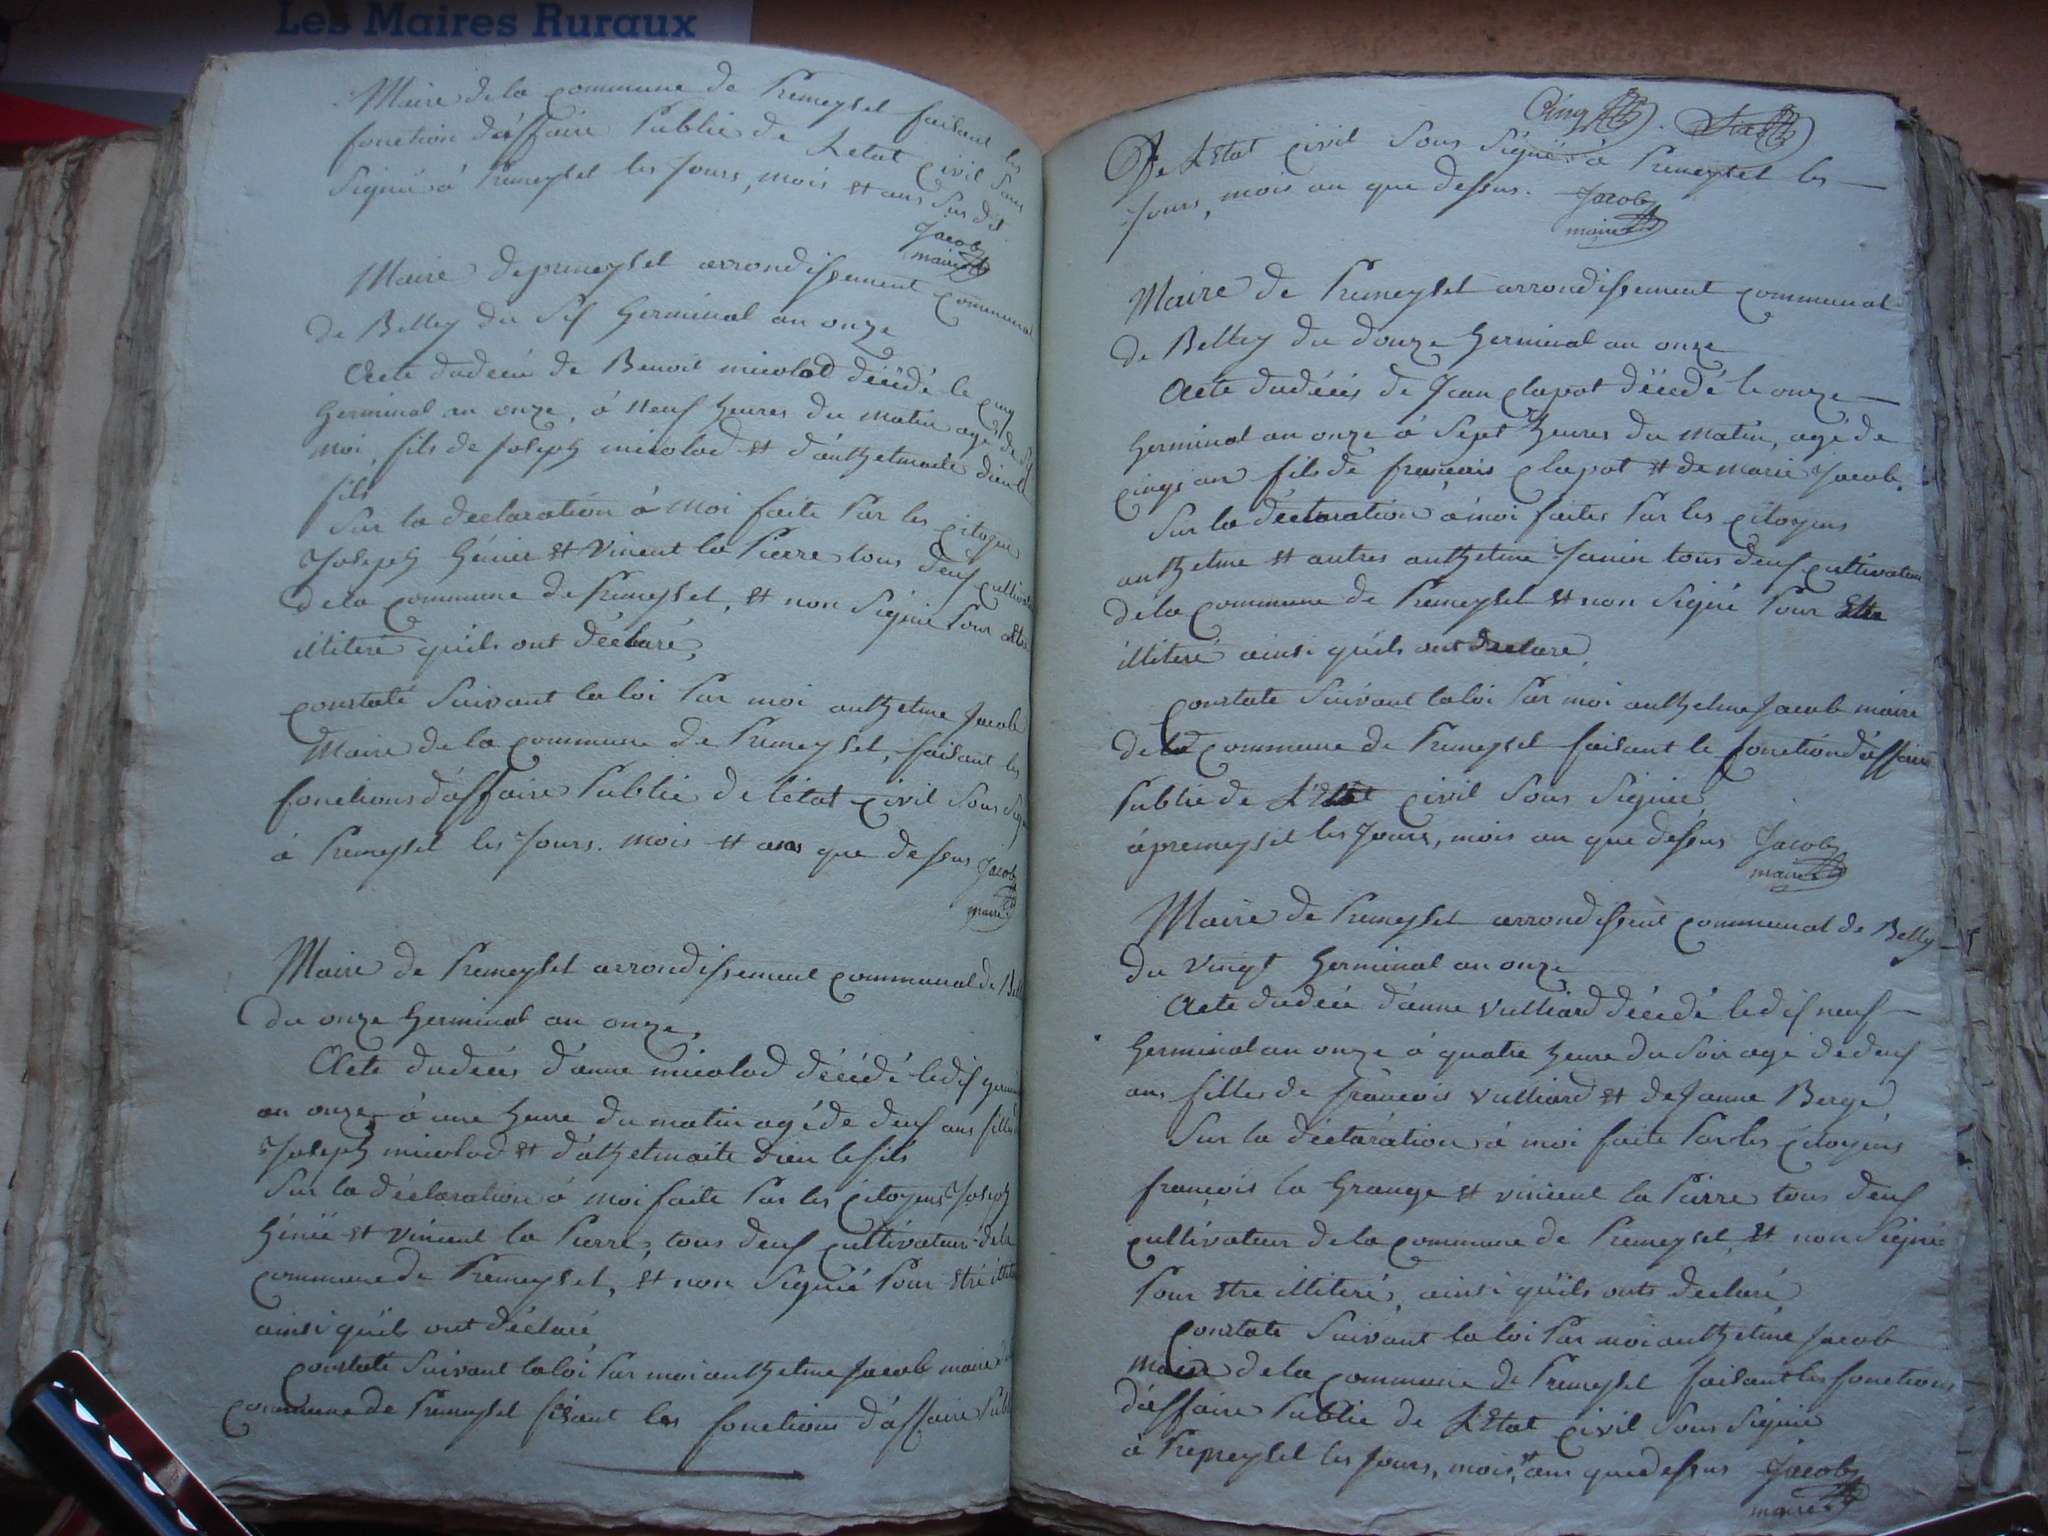 Les Maires Ruraux
Maire de la commune de Premeysel faisant les
fonction d'affaire Public de L'etat civil sous
Signié à Premeysel les Jours, mois et ans sus dit
Jacob
maire
Maire depremeysel arrondissement communal
de Belley du Sif Germinal an onze
Acte dudécü de Benoit micolod décédé le cinq
Germinal an onze, à neuf heures du matin agé de Sif
moi, fils de Joseph micolod et d'anthelmaite dieu le
fils
Sur la declaration à moi faite Par les citoyens
Joseph Génie et Vincent la Pierre tous deuf cultivateur
de la commune de Premeysel, et non Signié Pour etre
illiteré qu'ils ont déclaré,
constaté Suivant la loi Par moi anthelme Jacob
Maire de la commune de Premeysel, faisant les
fonctions d'affaire Public de l'état civil sous Sig
à Premeysel les Jours. mois et ans que dessus Jacob
maire
Maire de Premeysel arrondissement communal de Bell
du onze Germinal an onze,
Acte dudécés d'anne micolod décédé le dif germi
an onze à une heure du matin agé de deuf ans fille
Joseph micolod et d'athelmaite dieu le fils
Sur la déclaration à moi faite Par les citoyens Joseph
Génie et vincent la Pierre, tous deuf cultivateur de la
commune de Premeysel, et non Signié Pour etre illite
ainsi qu'ils ont déclaré
constaté Suivant la loi Par moi anthelme Jacob maire de
commune de Premeysel fesant les fonctions d'affaire Publ
Cinq Six
De L'Etat civil Sous Signié à Premeysel les
Jours, mois an que dessus. Jacob
maire
Maire de Premeysel arrondissement communal
de Belley du douze Germinal an onze
Acte dudécés de Jean clapot décédé le onze
Germinal an onze à Sept heures du matin, agé de
cinq an fils de francois clapot et de marie Jacob.
Sur la déclaration à moi faites Par les citoyens
anthelme et autres anthelme Janin tous deuf cultivateur
de la commune de Premeysel et non Signié Pour Etre
illiteré ainsi qu'ils ont declaré,
constaté Suivant la loi Par moi anthelme Jacob maire
de la commune de Premeysel faisant le fonction d'affaire
Public de L'Etat civil Sous Signié
àpremeysel les Jours, mois an que dessus Jacob
maire
Maire de Premeysel arrondissent communal de Belley
du vingt Germinal an onze
Acte dudécü d'anne Vulliard décédé le dif neuf
Germinal an onze à quatre heure du Soir agé de deuf
ans filles de francois Vulliard et de Janne Berge,
Sur la déclaration à moi faite Par les citoyens
francois la Grange et vincent la Pierre tous deuf
cultivateur de la commune de Premeysel, et non Signié
Pour etre illiteré, ainsi qu'ils onts declaré,
constaté Suivant la loi Par moi anthelme Jacob
maire de la commune de Premeysel faisant les fonctions
d'affaire Public de L'Etat civil Sous Signié
à Premeysel les Jours, mois, et ans que dessus Jacob
maire